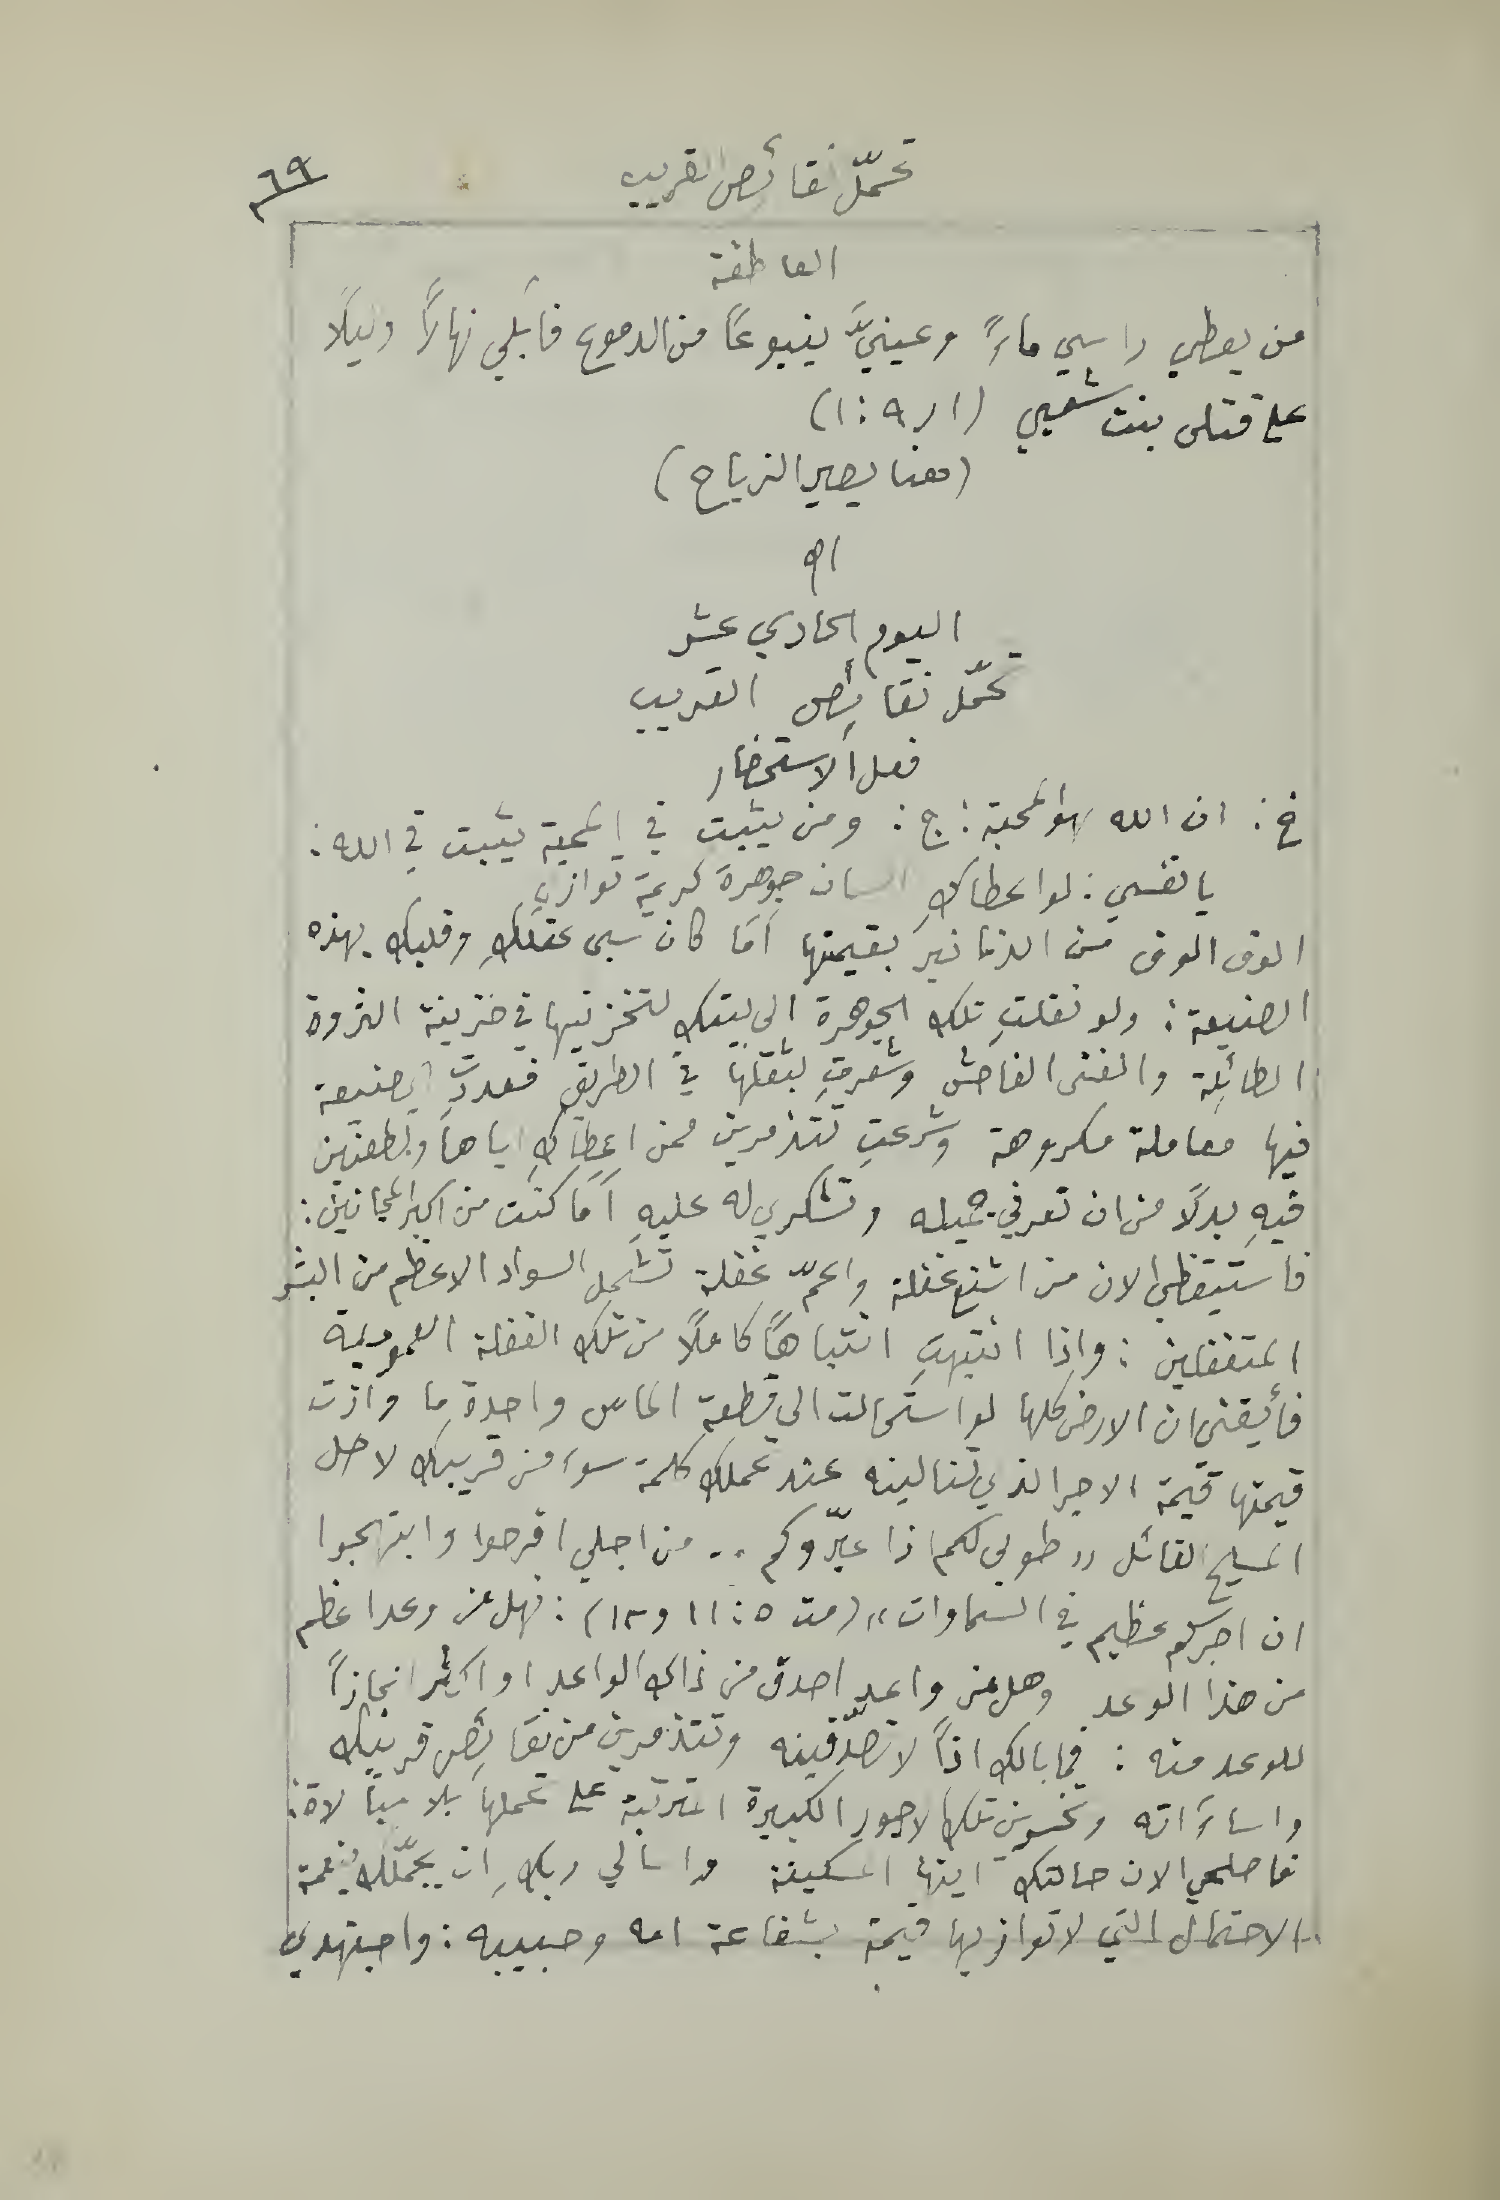 تحمّل نقائص القريب
٦٩
العاطفة
من يعطي راسي ماءً وعينيَّ ينبوعًا من الدموع فابكي نهارًا وليلًا
على قتلى بنت شعبي (ار ٩: ١)
(معنا يصير الزياح)
اليوم الحادي عشر
تحمّل نقائص القريب
فعل الاستحضار
خ: ان الله هو المحبة: ج: ومن يثبت في المحبة يثبت في الله:
يا نفسي: لو اعطاكِ انسان جوهرة كريمة توازي
الوف الوف من الدنانير بقيمتها أمَا كان سبى عقلكِ وقلبك بهذه
الصنيعة: ولو نقلتِ تلك الجوهرة الى بيتك لتخزنيها في خزينة الثروة
الطائلة والغنى الفاحش وشعرتِ بثقلها في الطريق فعددتِ الصنيعة
فيها معاملة مكروهة وشرعتِ تتذمرين ممن اعطاكِ اياها وتطعنين
فيهِ بدلًا من ان تعرفي جميله وتشكري له عليهِ أمَا كنت من اكبر المجانين:
فاستيقظي الان من اشنع غفلة واعمّ غفلة تشمل السواد الاعظم من البشر
المتغفلين: واذا انتبهتِ انتباهًا كاملًا من تلك الغفلة العمومية
فأيقني ان الارض كلها لو استحالت الى قطعة الماس واحدة ما وازت
قيمتها قيمة الاجر الذي تنالينه عند تحملك كلمة سوء من قريبك لاجل
المسيح القائل «طوبى لكم اذا عيّروكم .. من اجلي افرحوا وابتهجوا
ان اجركم عظيم في السماوات» (مت ٥: ١١ و١٢): فهل من وعد اعظم
من هذا الوعد وهل من واعد اصدق من ذاك الواعد او اكثر انجازاً
للوعد منه: فما بالك اذاً لا تصدّقينه وتتذمرين من نقائص قريبك
واساءاته وتخسرين تلك الاجور الكبيرة المترتبة على تحملها بلا مبالاة:
فاصلحي الان حالتك ايتها المسكينة واسالي ربكِ ان يجمّلك بنعمة
الاحتمال التي لا توازيها قيمة بشفاعة امه وحبيبه: واجتهدي